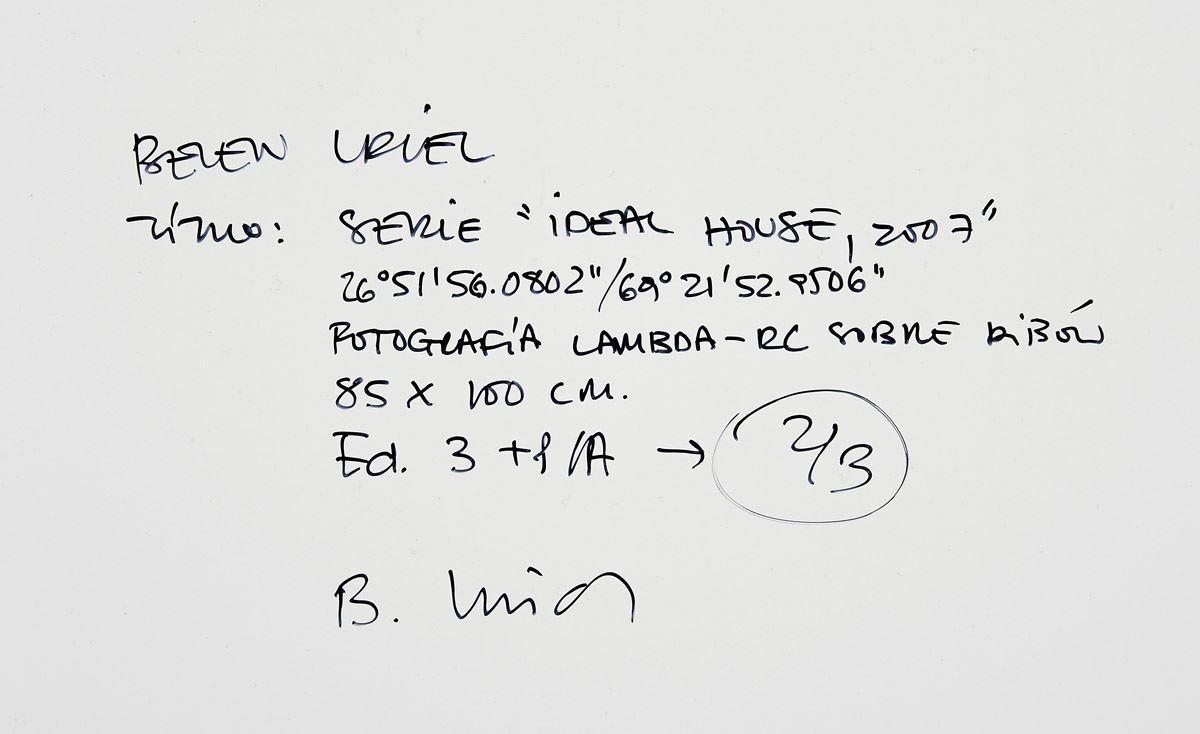 BELEN URIEL
TÍTULO: SERIE "IDEAL HOUSE, 2007"
26°51'56.0802"/69°21'52.9506"
FOTOGRAFÍA LAMBDA-RC SOBRE DIBÓN
85 X 100 CM.
Ed. 3 +1 /A → 2/3
B. Uriel